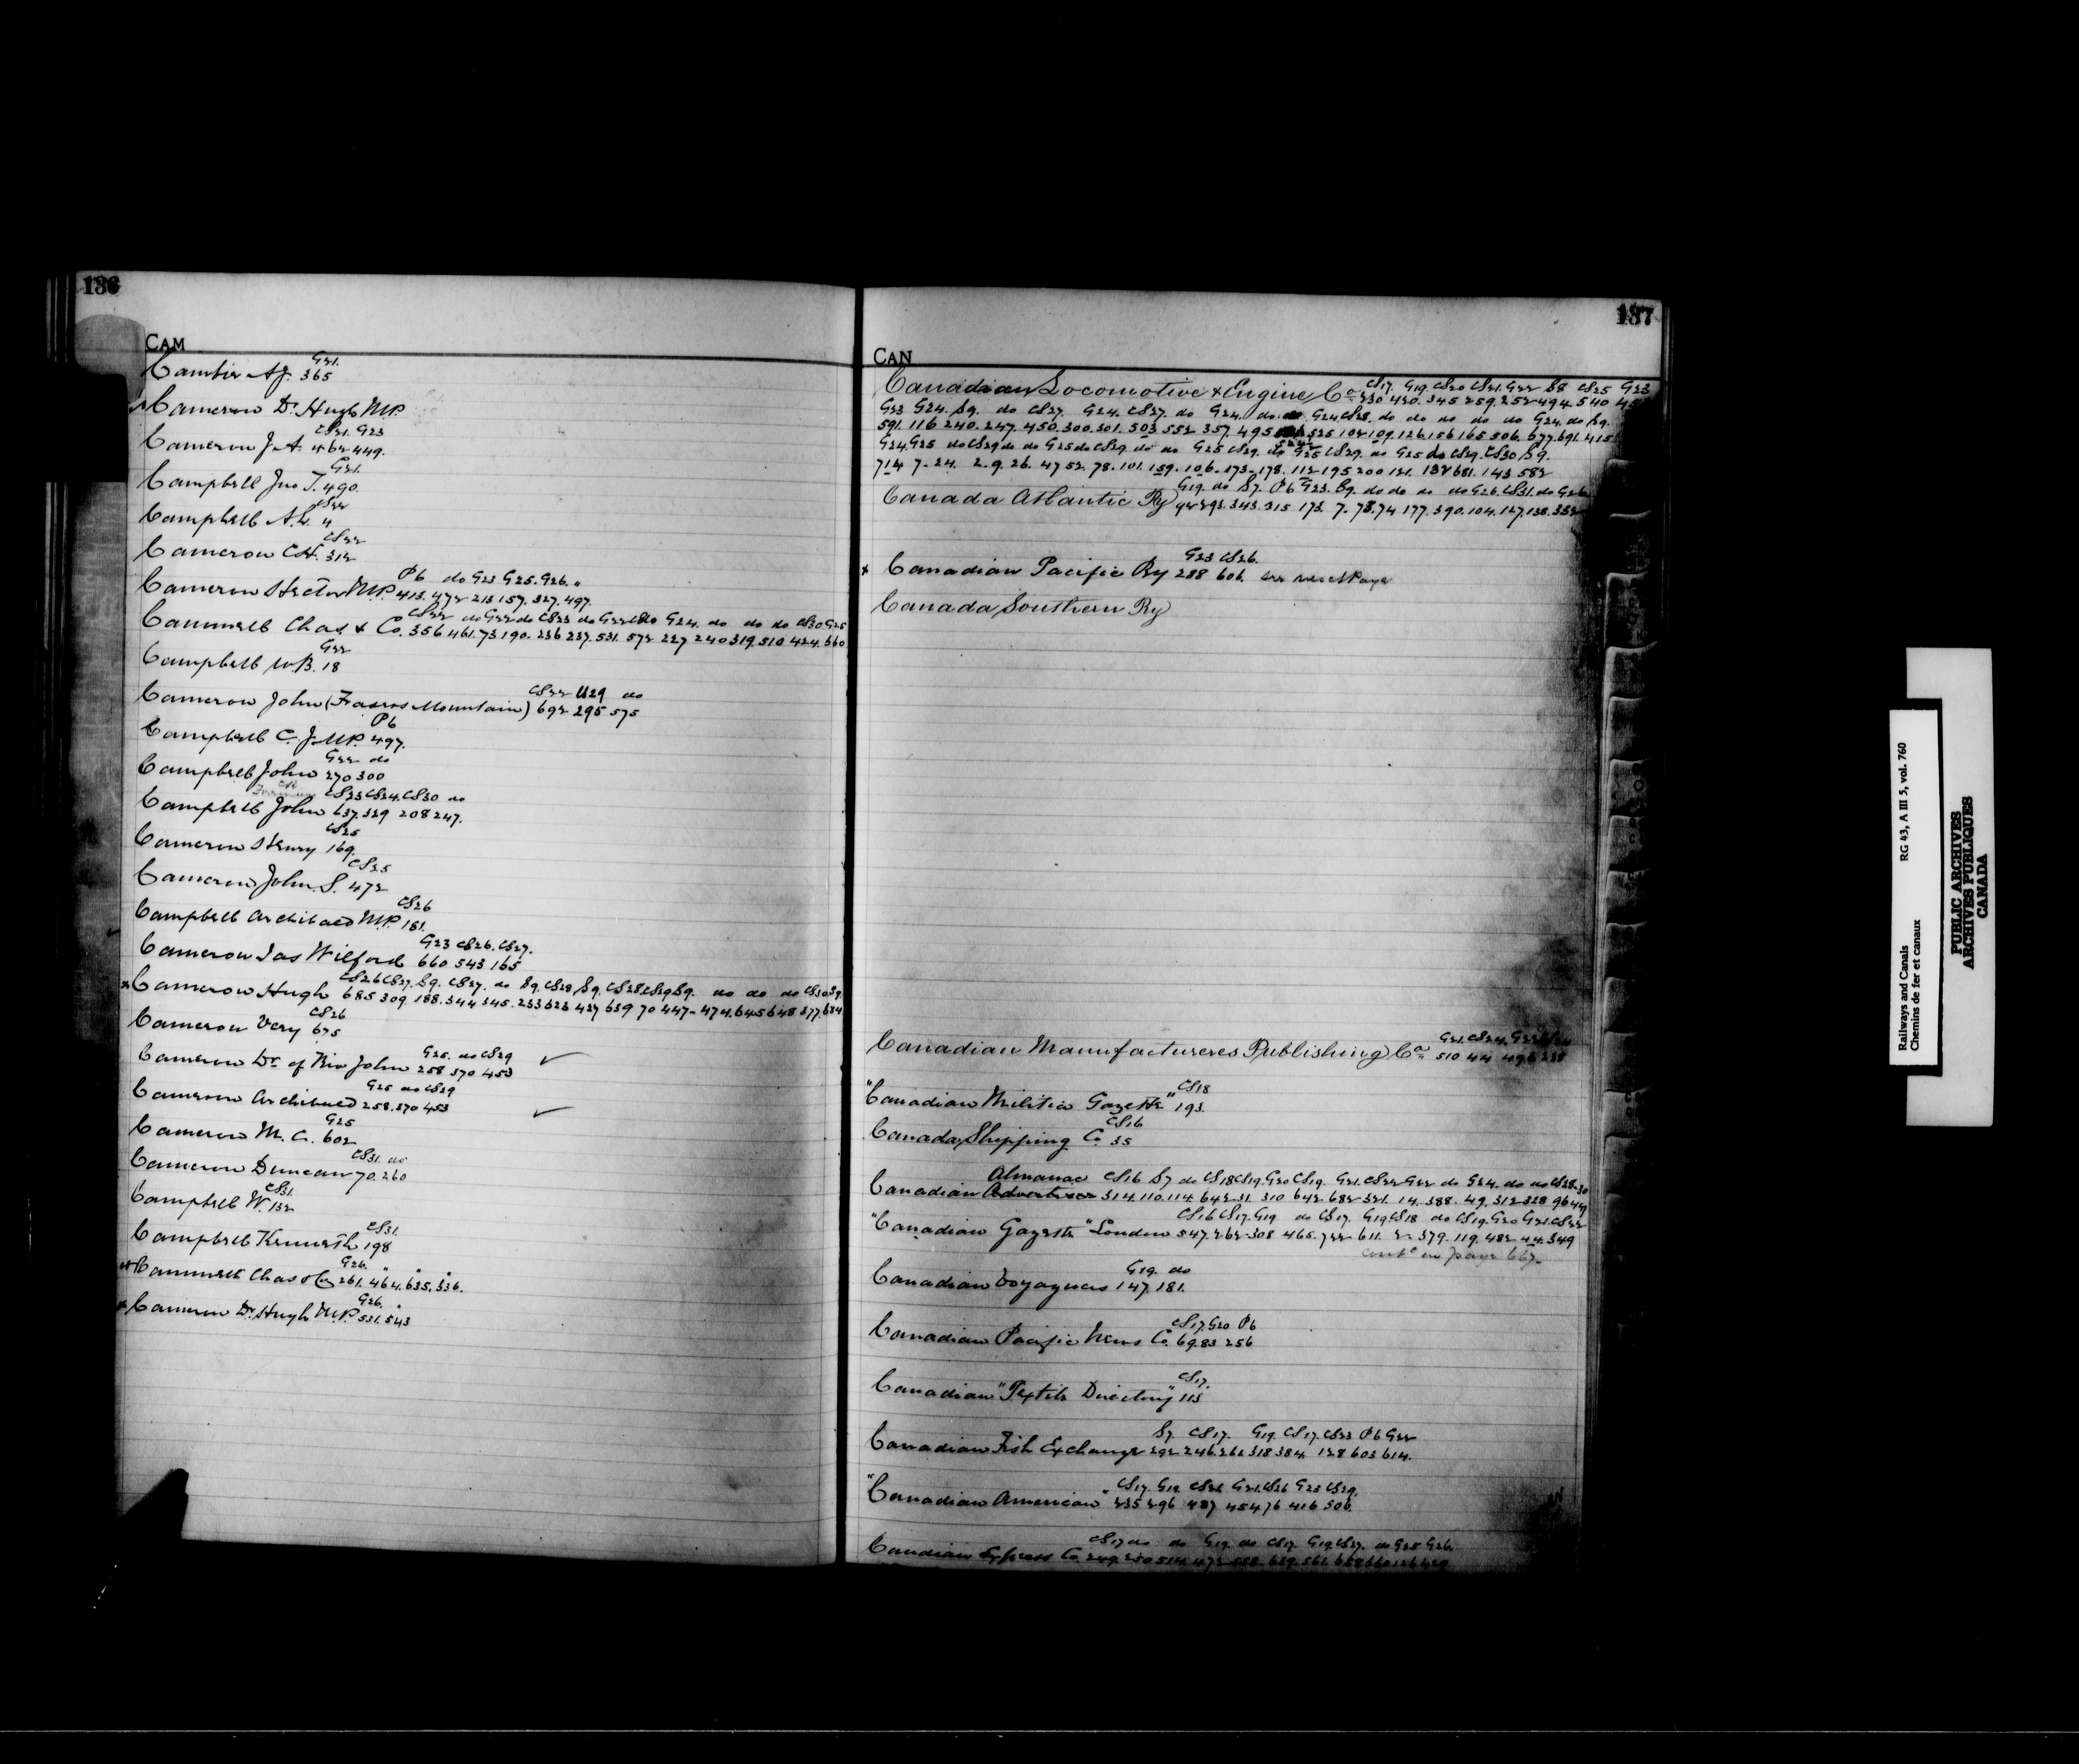 136
CAM
G21.
Cambie A J. 365
Cameron Dr Hugh M.P.
CS21. G23
Cameron J. A. 462 449.
G21.
Campbell Jno T. 490.
CS22
Campbell A. L. 4
CS22
Cameron C H. 312
P6 do G23 G25. G26. "
Cameron Hector M.P. 413. 472 213 157. 327. 497.
Cammell Chas & Co. 356 461. 73 190. 236 237. 531. 572 227 240 319. 510 424. 560
G22
Campbell W.B. 18
CS22 U29 do
Cameron John (Frasers Mountain) 692 295 575
P6
Campbell C. J. M.P. 497.
G22 do
Campbell John 270 300
CS23 CS24. CS30 do
Campbell John 637. 329 208 247.
CS25
Cameron Henry 169.
CS25
Cameron John. S. 472
CS26
Campbell Archibald M.P. 181.
G23 CS26. CS27.
Cameron Jas Wilford 660 543 165
CS26 CS27. S9. CS27. do S9. CS28 S9. CS28. CS29 S9. do do do CS30 S9.
Cameron Hugh 685 309. 188. 344 345. 233 323 427 639 70 447- 474. 645 648 377. 684
CS26
Cameron Very 675
G25. do CS29
Cameron Dr of Riv John 258 370 453
G25 do CS29
Cameron Archibald 258. 370 453
G25
Cameron M. C. 602
CS31. do
Cameron Duncan 70. 260
CS31.
Campbell W. 132
CS31.
Campbell Kenneth 198
G26. " " "
Cammell Chas & Co 261. 464. 635. 336.
G26. "
Cameron Dr Hugh M.P. 531. 543
137
CAN
CS17. G19. CS20 CS21. G22 S8 CS25 G23
Canadian Locomotive & Engine Co 230 420. 345 259. 252 494. 540
G23 G24. S9. do CS27. G24. CS27. do G24. do do G24 CS28. do do do do do G24. do S9.
591. 116 240. 247. 450. 300. 301. 503 552 357. 495 525 102 109. 126. 156 165 306. 677. 691. 415
714 7. 24. 2. 9. 26. 47 52. 78. 101. 159. 106. 173. 178. 112 195 200 121. 132 681. 143 582
G19. do S7. P6 G23. S9. do do do do G26. CS31. do G26
Canada Atlantic Ry 92 293. 343. 315 173. 7. 78. 74 177. 390. 104. 127. 138. 332
G23 CS26.
Canadian Pacific Ry 288 606. see next Page
Canada Southern Ry
Canadian Manufactureres Publishing Co 510 44 496
CS18
"Canadian Militia Gazette" 193.
CS16
Canada Shipping Co 35
Almanac CS16 S7 do CS18 CS19. G20 CS19. G21. CS22 G22 do G24. do do CS28. 30
Canadian Advertiser 314. 110. 114 642 31. 310 642. 682 321. 14. 388. 49. 312 328 96 44
CS16 CS17. G19 do CS17. G19 CS18 do CS19. G20 G21. CS22
"Canadian Gazette" London 547. 262 308 465. 722 611. 2- 379. 119. 482 44. 349
contd on page 667.
G19. do
Canadian Voyageurs 147. 181.
CS17. G20 P6
Canadian Pacific News Co. 69. 83 256
CS17.
Canadian "Textile Directory" 113
S7. CS17. G19. CS17. CS23 P6 G22
Canadian Fish Exchange 292 246. 262 318 384. 128 603 614.
CS17. G19. CS21 G21. CS26 G23 CS29.
"Canadian American" 235 296 427 454 76 416 306.
CS17 do do G19. do CS17. G19 CS27. do G25 G26.
Canadian Express Co. 249. 250 514. 472 558. 629. 561. 658 660 126 429
Railways and Canals RG 43, A III 5, vol. 760
Chemins de fer et canaux
PUBLIC ARCHIVES
ARCHIVES PUBLIQUES
CANADA